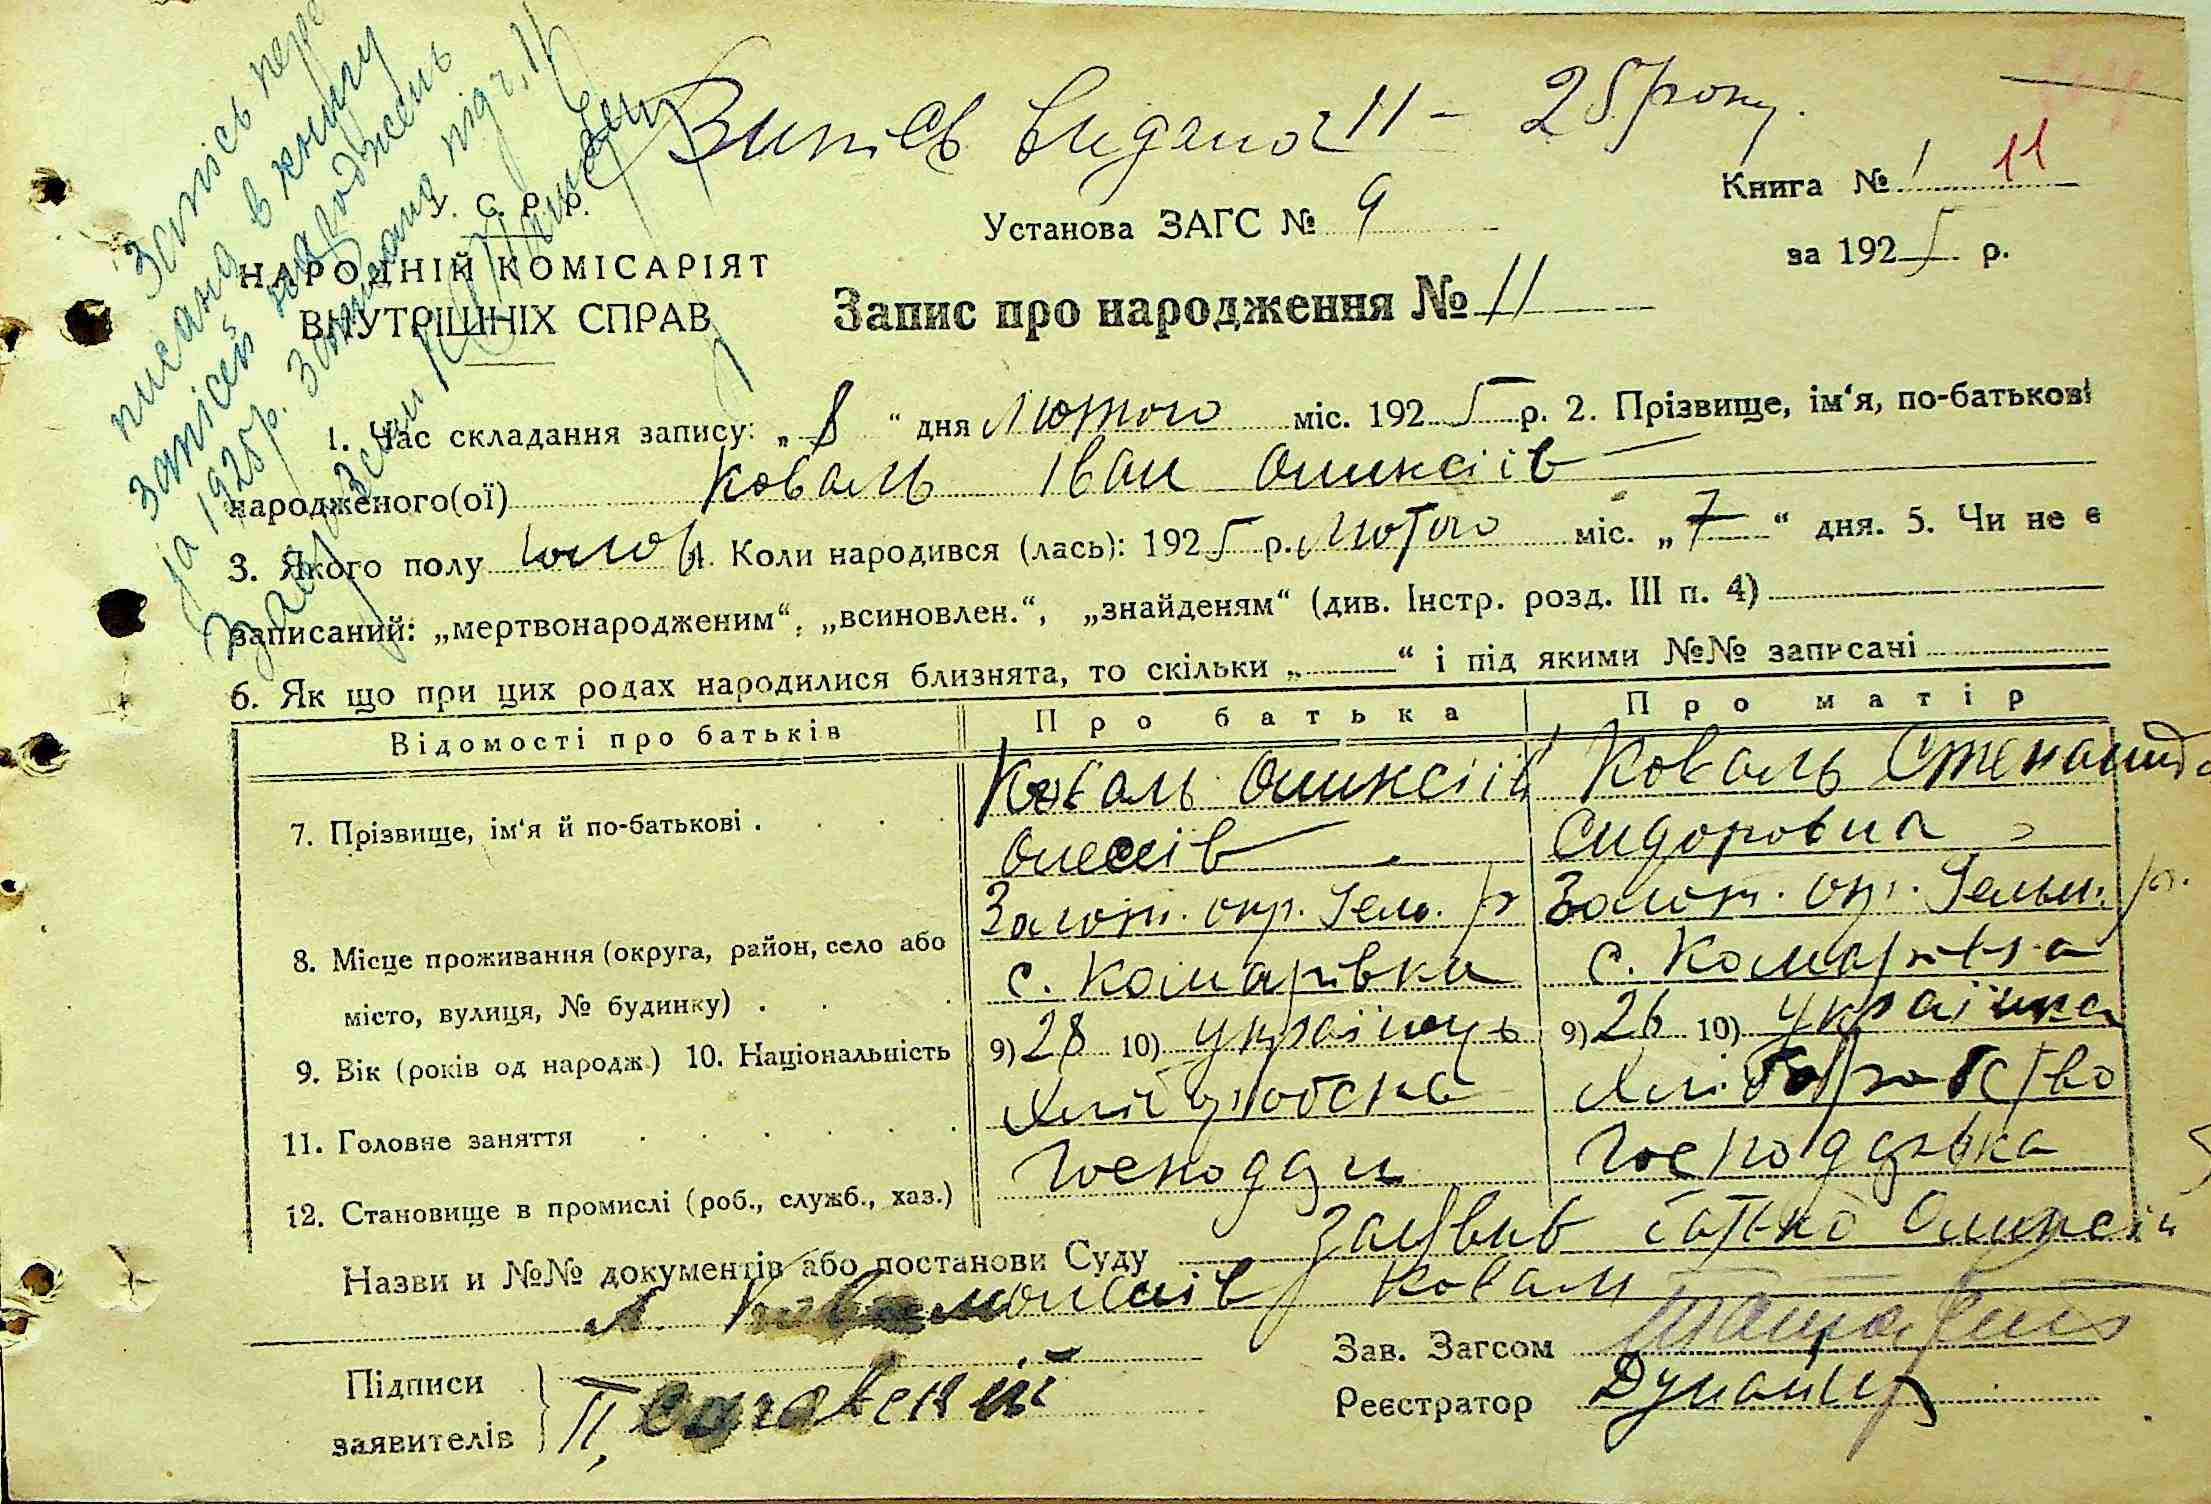 Запись пере
писано в книгу
записей народжень
за 1925 р. Записано під ч. 11
Зав. Загсом
Випісь видано 2/II – 25 року.
У. С. Р. Р.
НАРОДНІЙ КОМІСАРІЯТ
ВНУТРІШНІХ СПРАВ
Установа ЗАГС № 9
Книга № 1 11
за 1925 р.
Запис про народження № 11
1. Час складання запису: „8“ дня Лютого міс. 1925 р. 2. Прізвище, ім‘я, по-батькові
народженого(ої) Коваль Іван Оликсіів
3. Якого полу чолов. 4. Коли народився (лась): 1925 р. Лютого міс. „7“ дня. 5. Чи не є
записаний: „мертвонародженим“, „всиновлен.“, „знайденям“ (див. Інстр. розд. III п. 4)
6. Як що при цих родах народилися близнята, то скільки „—“ і під якими №№ записані
Відомості про батьків Про батька Про матір
7. Прізвище, ім‘я й по-батькові . Коваль Оликсіій Коваль Степанида
Сидоровна
8. Місце проживання (округа, район, село або Золот. окр. Гелм. р Золот. окр. Гельм. р.
місто, вулиця, № будинку) . с. Комарівка с. Комарівка
9. Вік (років од народж.) 10. Національність 9) 28 10) українець 9) 26 10) українка
11. Головне заняття Хліборобство
12. Становище в промислі (роб., служб., хаз.) Господар Господарька
Назви и №№ документів або постанови Суду Заявив батько Оликсій
Коваль
Підписи
заявителів
Зав. Загсом
Реєстратор